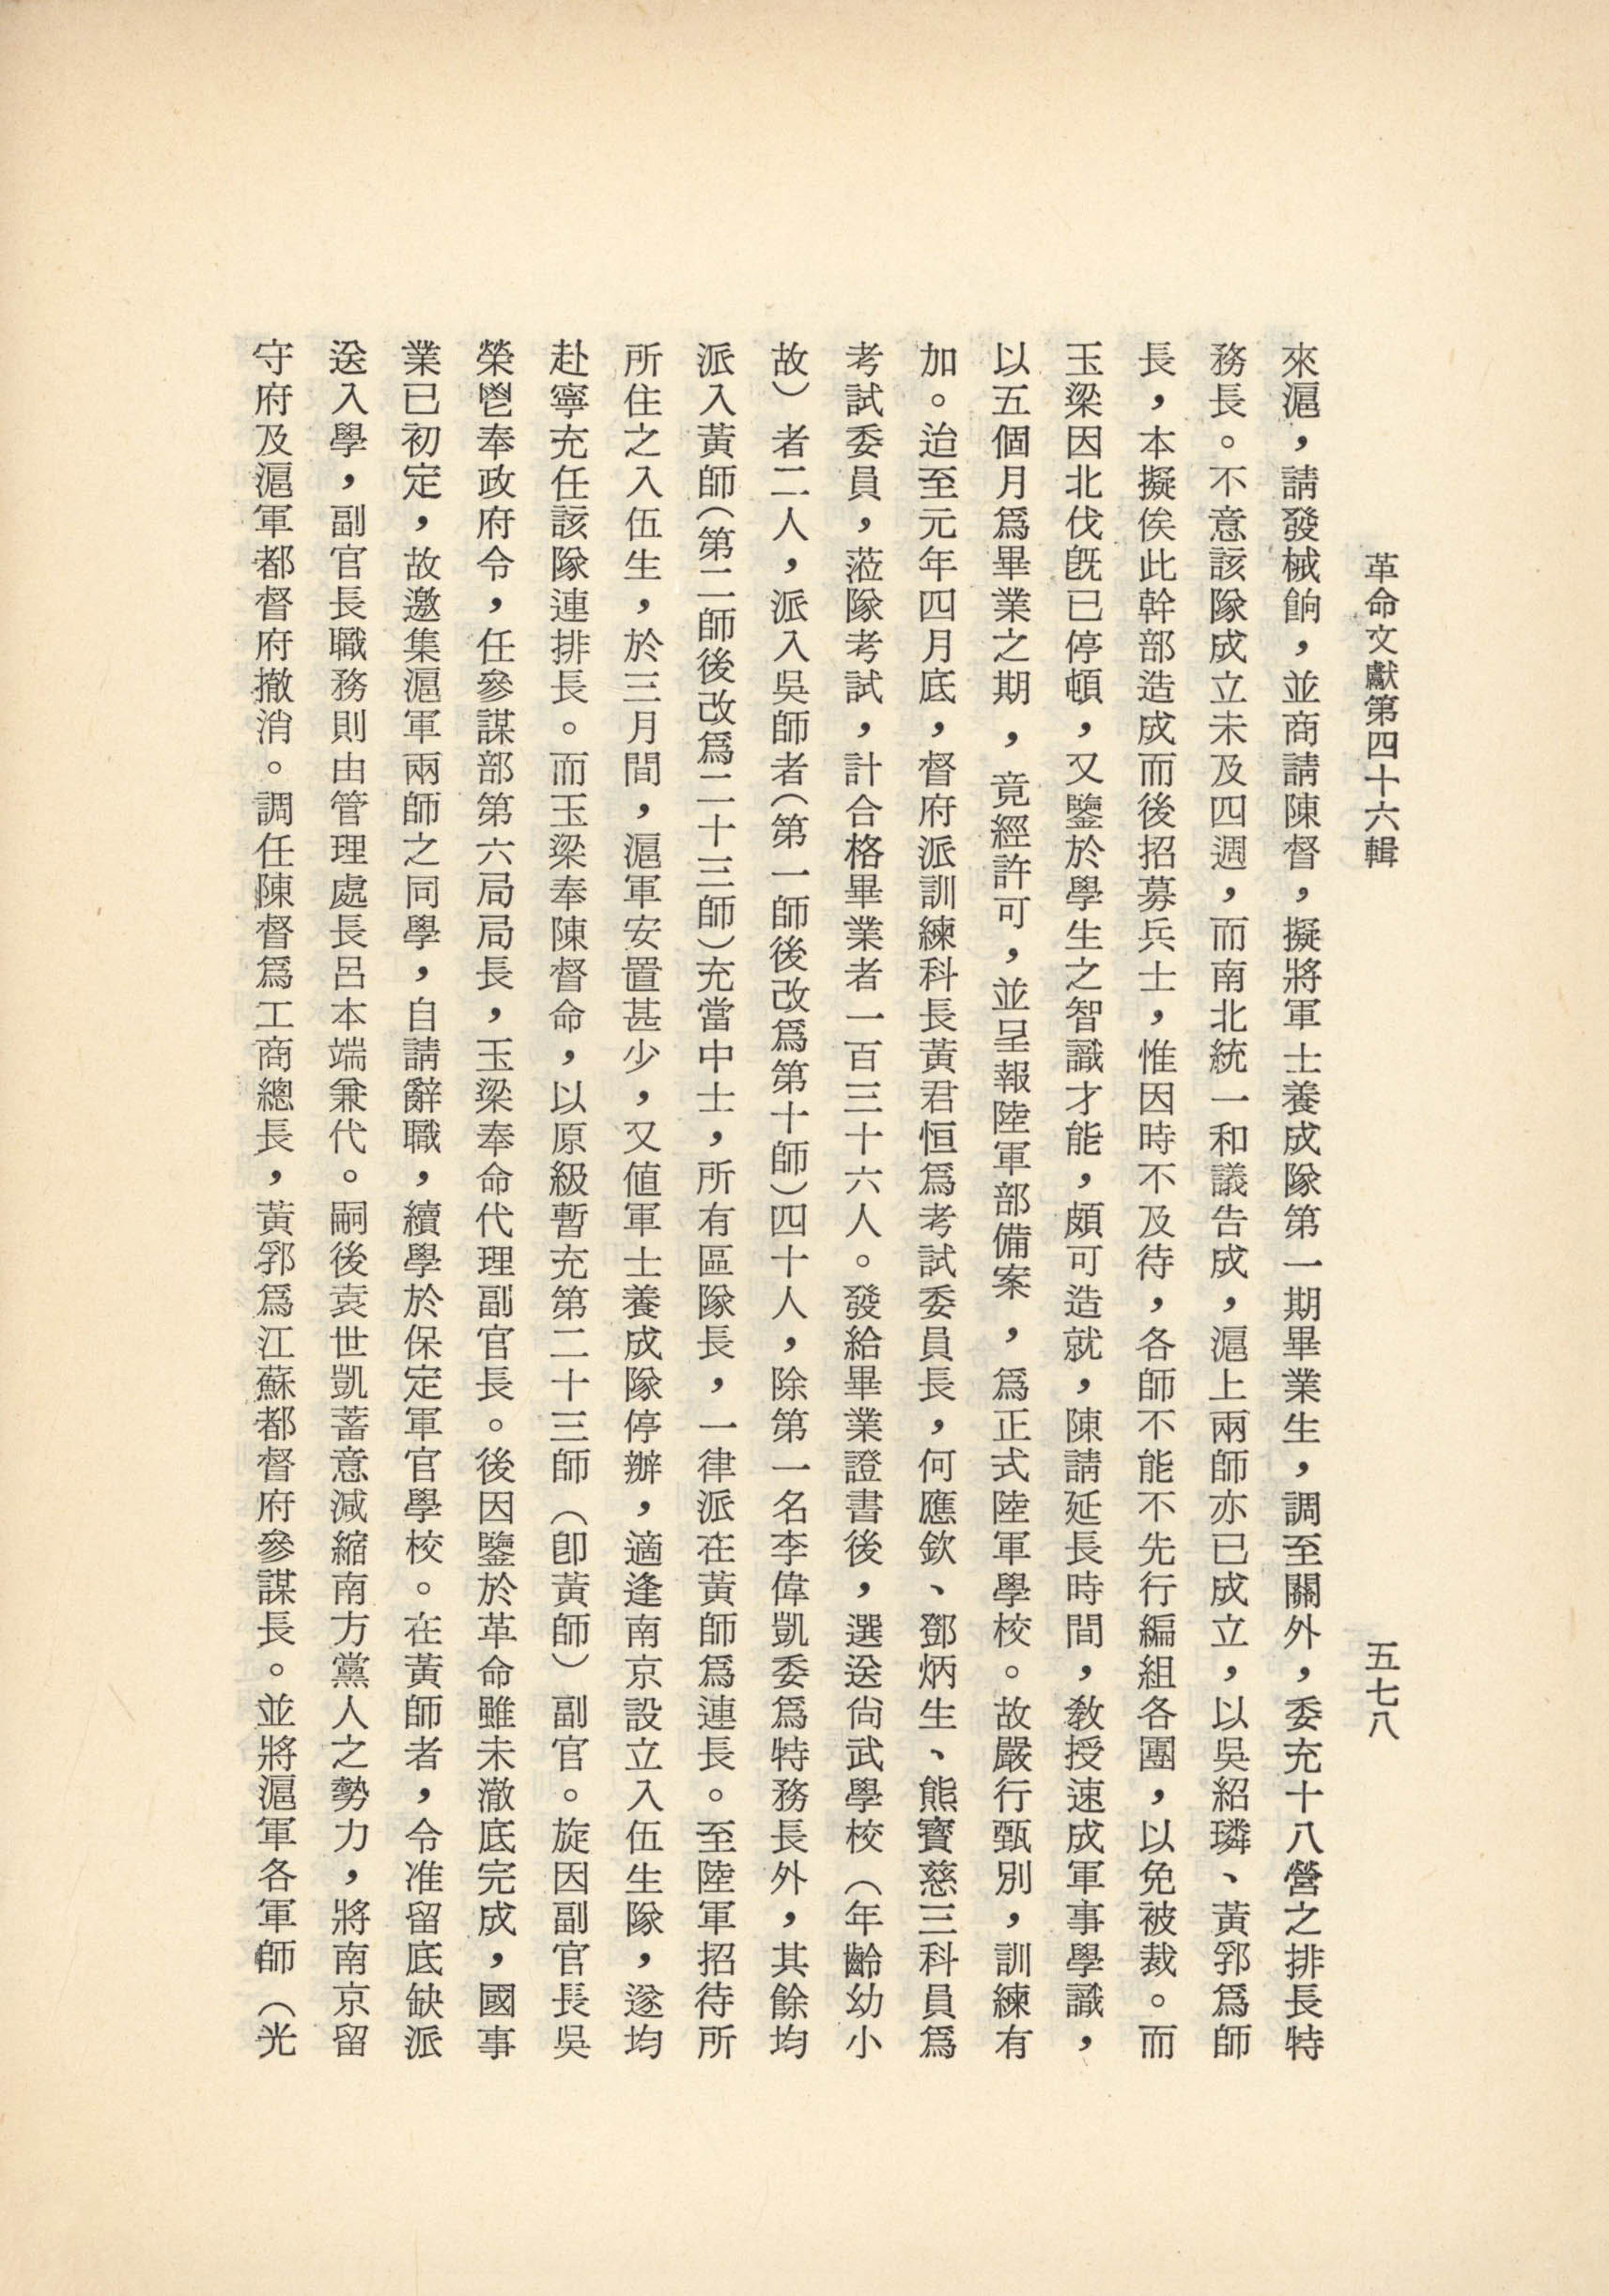 革命文獻第四十六輯　五七八
來滬，請發械餉，並商請陳督，擬將軍士養成隊第一期畢業生，調至關外，委充十八營之排長特
務長。不意該隊成立未及四週，而南北統一和議告成，滬上兩師亦已成立，以吳紹璘、黃郛爲師
長，本擬俟此幹部造成而後招募兵士，惟因時不及待，各師不能不先行編組各團，以免被裁。而
玉梁因北伐旣已停頓，又鑒於學生之智識才能，頗可造就，陳請延長時間，敎授速成軍事學識，
以五個月爲畢業之期，竟經許可，並呈報陸軍部備案，爲正式陸軍學校。故嚴行甄別，訓練有
加。迨至元年四月底，督府派訓練科長黃君恒爲考試委員長，何應欽、鄧炳生、熊寶慈三科員爲
考試委員，蒞隊考試，計合格畢業者一百三十六人。發給畢業證書後，選送尙武學校（年齡幼小
故）者二人，派入吳師者（第一師後改爲第十師）四十人，除第一名李偉凱委爲特務長外，其餘均
派入黃師（第二師後改爲二十三師）充當中士，所有區隊長，一律派在黃師爲連長。至陸軍招待所
所住之入伍生，於三月間，滬軍安置甚少，又値軍士養成隊停辦，適逢南京設立入伍生隊，遂均
赴寧充任該隊連排長。而玉梁奉陳督命，以原級暫充第二十三師（卽黃師）副官。旋因副官長吳
榮鬯奉政府令，任參謀部第六局局長，玉梁奉命代理副官長。後因鑒於革命雖未澈底完成，國事
業已初定，故邀集滬軍兩師之同學，自請辭職，續學於保定軍官學校。在黃師者，令准留底缺派
送入學，副官長職務則由管理處長呂本端兼代。嗣後袁世凱蓄意減縮南方黨人之勢力，將南京留
守府及滬軍都督府撤消。調任陳督爲工商總長，黃郛爲江蘇都督府參謀長。並將滬軍各軍師（光